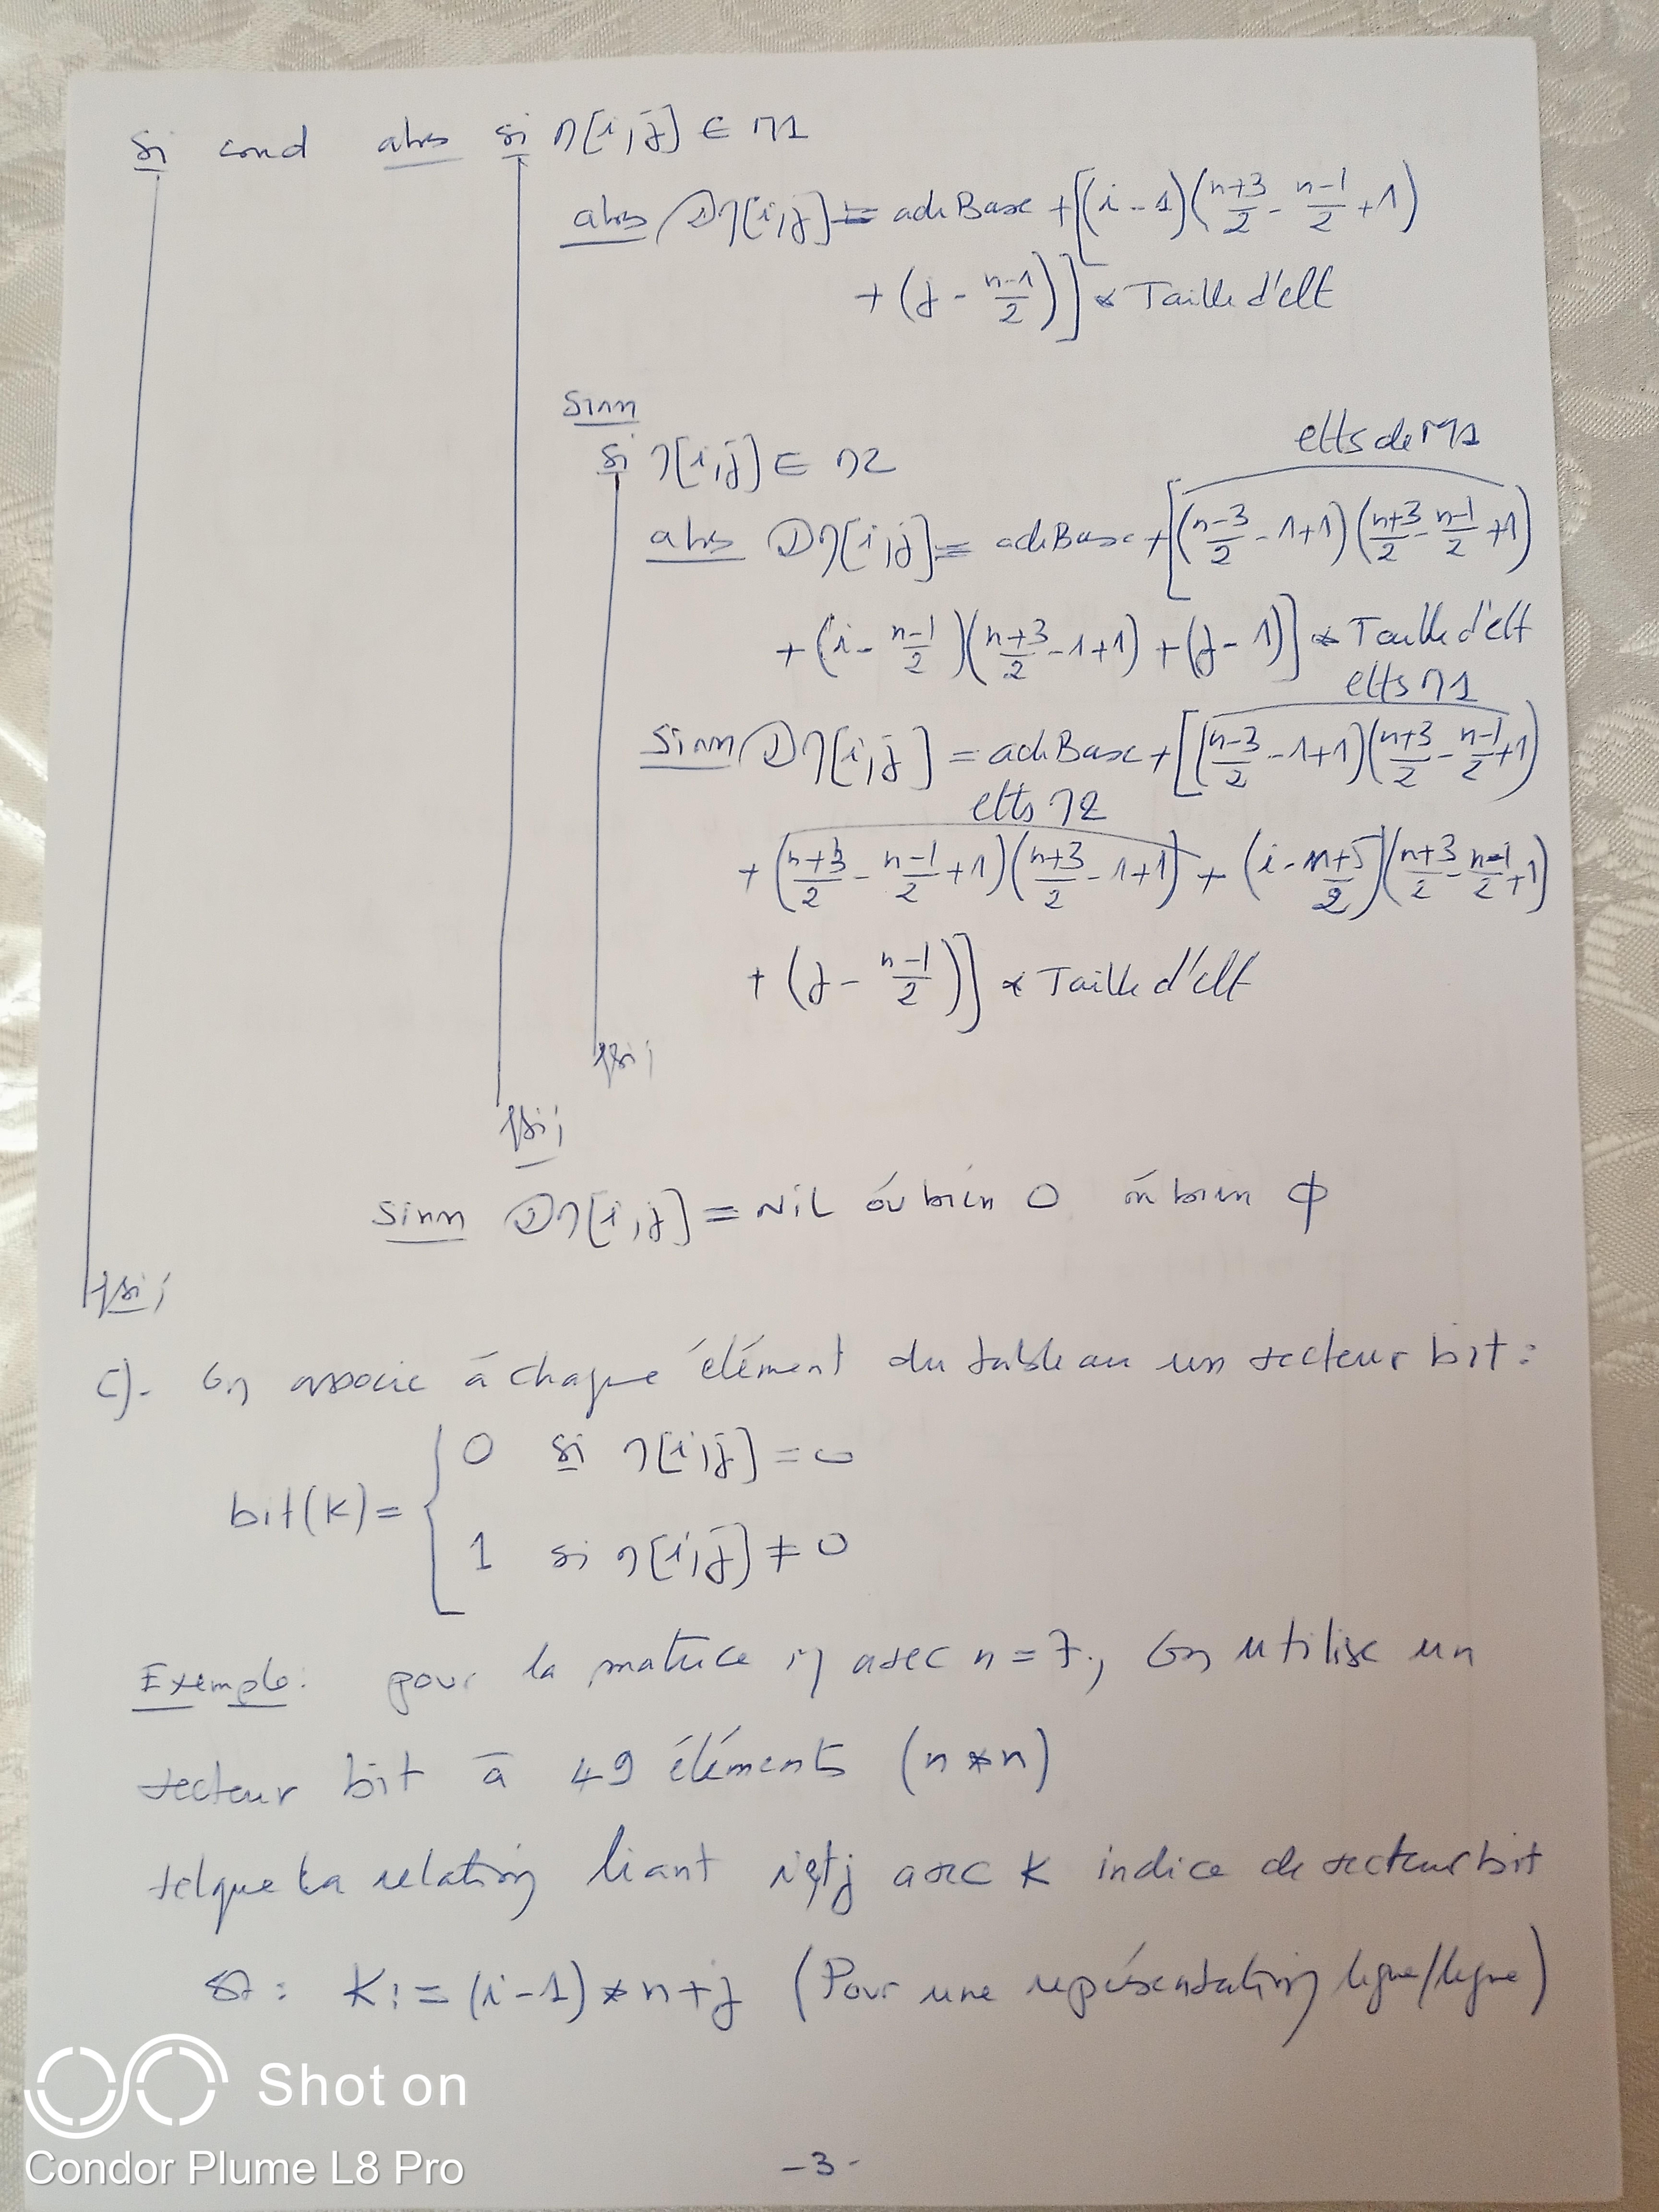 si cond alors si M[i,j] ∈ M1
alors @M[i,j] = adr Base + [(i - 1)(n+3/2 - n-1/2 + 1)
+ (j - n-1/2)] * Taille d'elt
sinon
si M[i,j] ∈ M2
elts de M1
alors @M[i,j] = adr Base + [(n-3/2 - 1+1)(n+3/2 - n-1/2 + 1)
+ (i - n-1/2)(n+3/2 - 1+1) + (j - 1)] * Taille d'elt
elts M1
sinon @M[i,j] = adr Base + [(n-3/2 - 1+1)(n+3/2 - n-1/2 + 1)
elts M2
+ (n+3/2 - n-1/2 + 1)(n+3/2 - 1+1) + (i - n+5/2)(n+3/2 - n-1/2 + 1)
+ (j - n-1/2)] * Taille d'elt
fsi;
fsi;
sinon @M[i,j] = Nil ou bien 0 ou bien ϕ
fsi;
C)- On associe à chaque élément du tableau un vecteur bit :
bit(K) = { 0 si M[i,j] = 0
1 si M[i,j] ≠ 0
Exemple: pour la matrice M avec n = 7, On utilise un
vecteur bit à 49 éléments (n * n)
telque la relation liant i et j avec K indice de vecteur bit
est : K := (i-1) * n + j (Pour une représentation ligne/ligne)
- 3 -
Shot on
Condor Plume L8 Pro